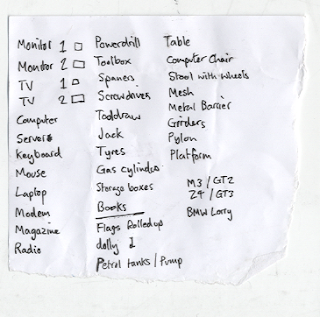 Monitor 1
Monitor 2
TV 1
TV 2
Computer
Servers
Keyboard
Mouse
Laptop
Modem
Magazine
Radio
Powerdrill
Toolbox
Spaners
Screwdrives
Tooldraw
Jack
Tyres
Gas cylinder
Storage boxes
Books
Flags Rolledup
dolly 1
Petrol tanks / Pump
Table
Computer Chair
Stool with wheels
Mesh
Metal Barrier
Grinders
Pylon
Platform
M3 / GT2
Z4 / GT3
BMW Lorry